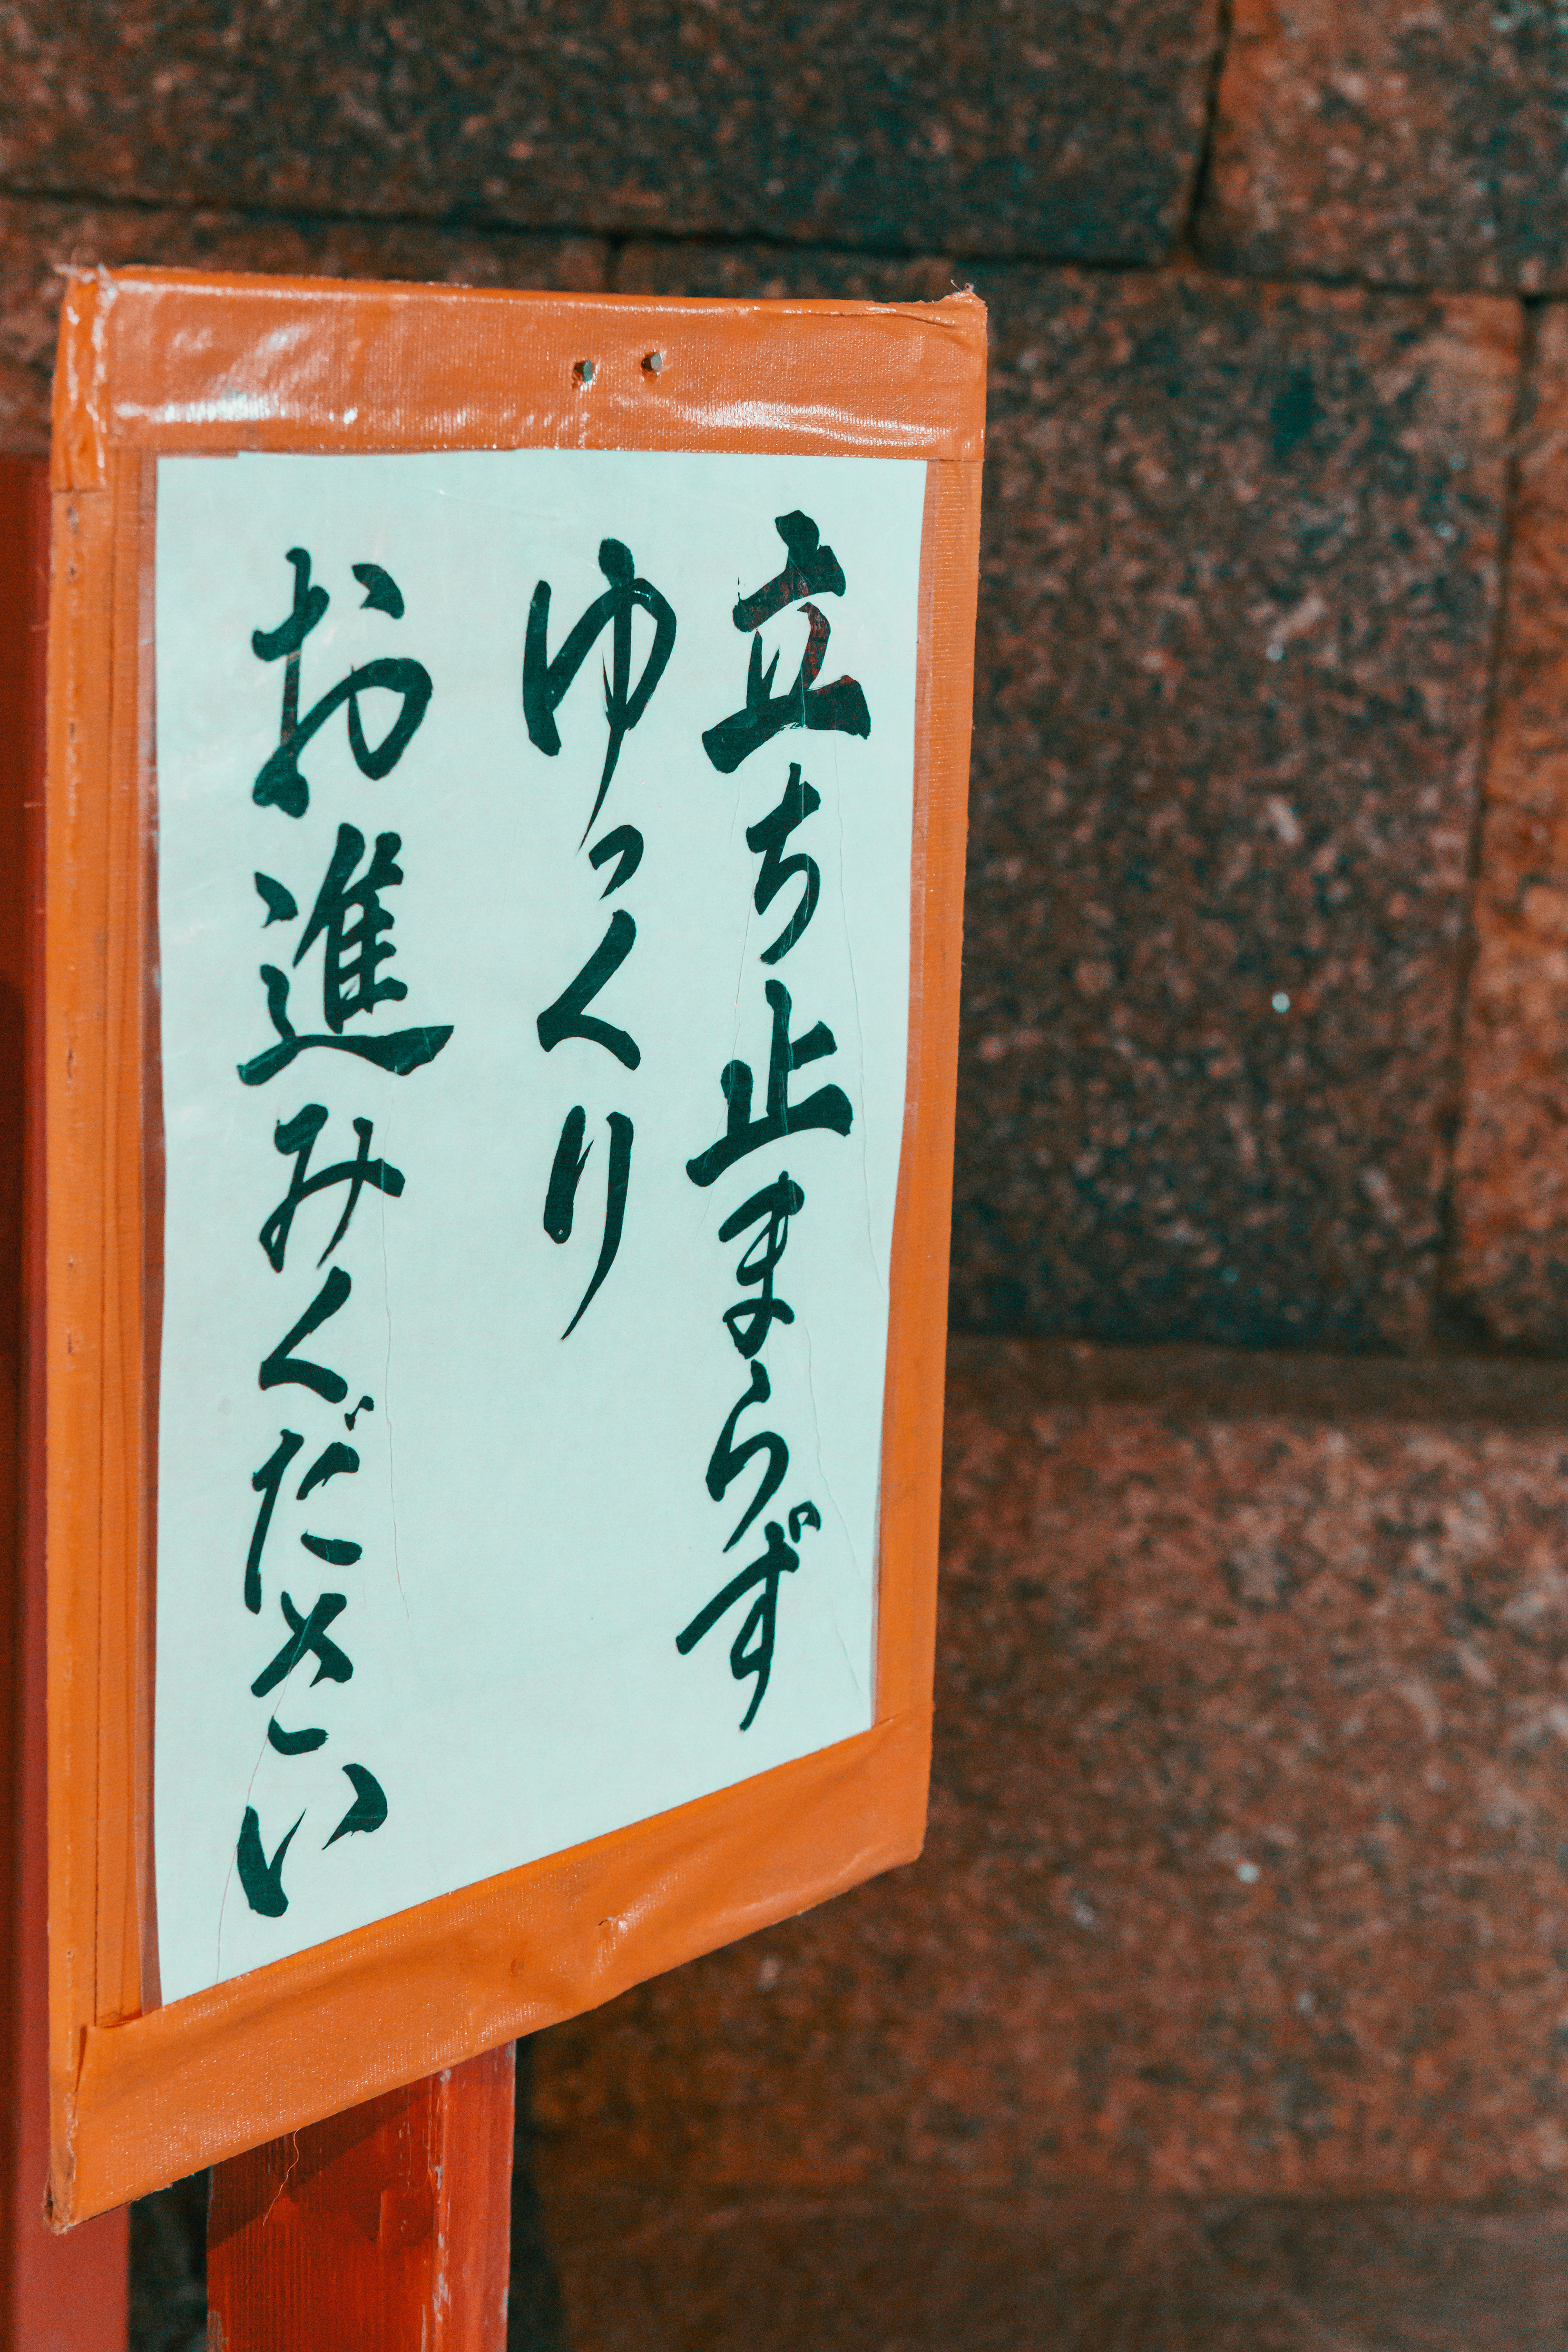 立ち止まらず
ゆっくり
お進みください